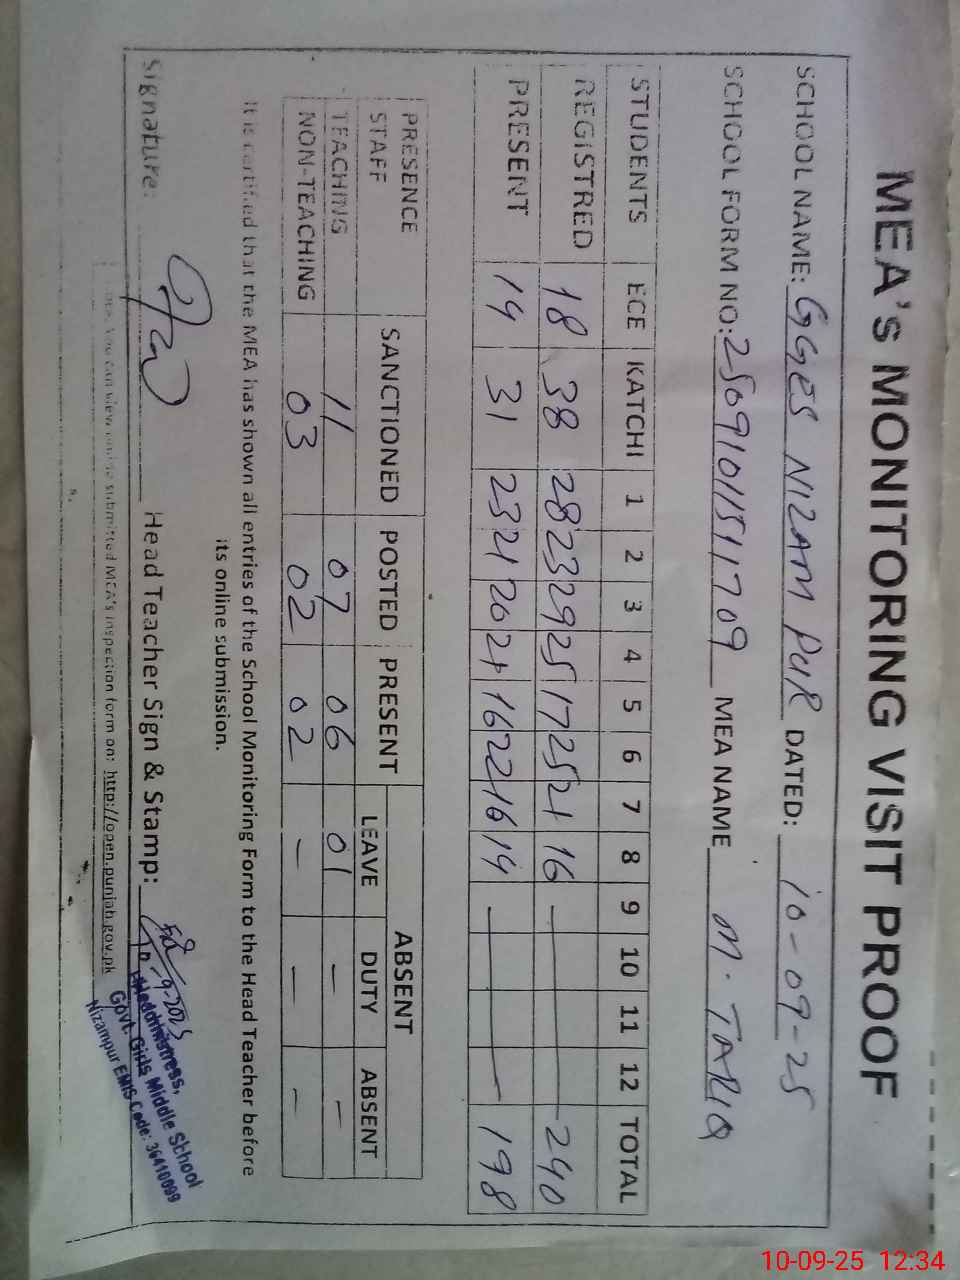 MEA's MONITORING VISIT PROOF
SCHOOL NAME: GGES NIZAM PUR DATED: 10-09-25
SCHOOL FORM NO: 25091011511709 MEA NAME M. TARIQ
STUDENTS ECE KATCHI 1 2 3 4 5 6 7 8 9 10 11 12 TOTAL
REGISTRED 18 38 28 23 29 25 17 25 21 16 — 240
PRESENT 14 31 23 21 20 21 16 22 16 14 — 198
PRESENCE SANCTIONED POSTED PRESENT ABSENT
STAFF LEAVE DUTY ABSENT
TEACHING 11 07 06 01 — —
NON-TEACHING 03 02 02 — — —
It is certified that the MEA has shown all entries of the School Monitoring Form to the Head Teacher before
its online submission.
Signature: Head Teacher Sign & Stamp:
Headmistress,
Govt. Girls Middle School
Nizampur EMIS Code: 36410099
You can view online submitted MEA's inspection form on: http://open.punjab.gov.pk
10-09-25 12:34